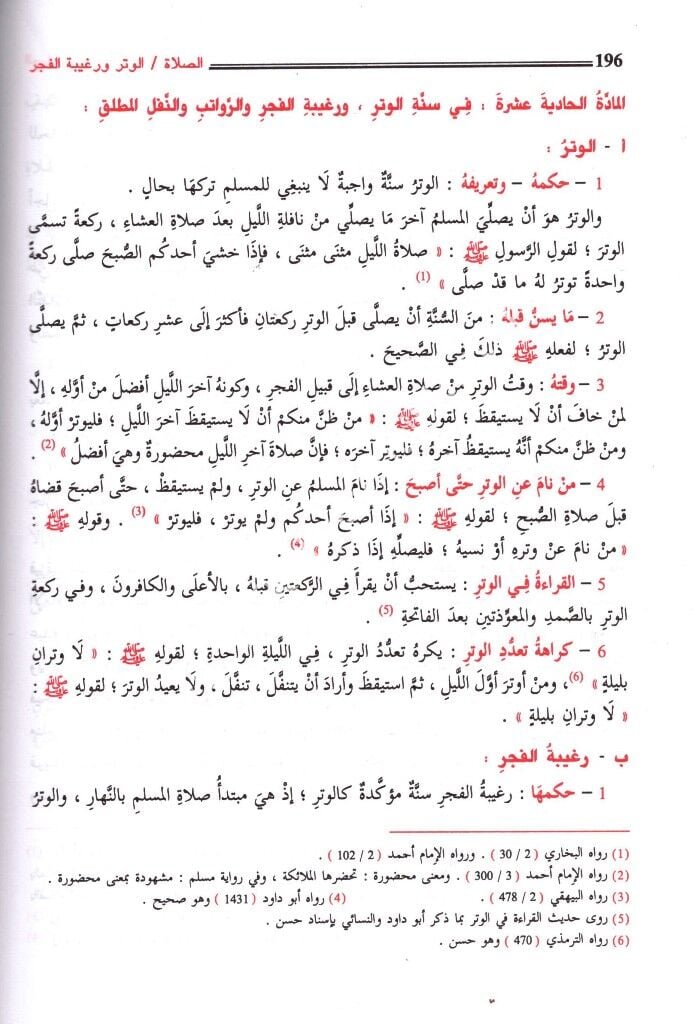 196 الصلاة / الوتر ورغيبة الفجر
المادَّةُ الحاديةَ عشرةَ : فِي سنَّةِ الوترِ ، ورغيبةِ الفجرِ والرَّواتبِ والنَّفلِ المطلقِ :
أ - الوترُ :
1 – حكمهُ – وتعريفهُ : الوترُ سنَّةٌ واجبةٌ لَا ينبغِي للمسلمِ تركهَا بحالٍ .
والوترُ هوَ أنْ يصلِّيَ المسلمُ آخرَ مَا يصلِّي منْ نافلةِ اللَّيلِ بعدَ صلاةِ العشاءِ ، ركعةً تسمَّى
الوترَ ؛ لقولِ الرَّسولِ ﷺ : « صلاةُ اللَّيلِ مثنَى مثنَى ، فإذَا خشيَ أحدكُم الصُّبحَ صلَّى ركعةً
واحدةً توترُ لهُ ما قدْ صلَّى » (1) .
2 – مَا يسنُّ قبلهُ : منَ السُّنَّةِ أنْ يصلَّى قبلَ الوترِ ركعتانِ فأكثرَ إلَى عشرِ ركعاتٍ ، ثمَّ يصلَّى
الوترُ ؛ لفعلهِ ﷺ ذلكَ فِي الصَّحيحَ .
3 – وقتهُ : وقتُ الوترِ منْ صلاةِ العشاءِ إلَى قبيلِ الفجرِ ، وكونهُ آخرَ اللَّيلِ أفضلَ منْ أوَّلهِ ، إلَّا
لمنْ خافَ أنْ لَا يستيقظَ ؛ لقولهِ ﷺ : « منْ ظنَّ منكمْ أنْ لَا يستيقظَ آخرَ اللَّيلِ ؛ فليوترْ أوَّلهُ ،
ومنْ ظنَّ منكمْ أنَّهُ يستيقظُ آخرهُ ؛ فليوتر آخرَه ؛ فإنَّ صلاةَ آخرِ اللَّيلِ محضورةٌ وهيَ أفضلُ » (2) .
4 – منْ نامَ عنِ الوترِ حتَّى أصبحَ : إذَا نامَ المسلمُ عنِ الوترِ ، ولمْ يستيقظْ ، حتَّى أصبحَ قضاهُ
قبلَ صلاةِ الصُّبحِ ؛ لقولهِ ﷺ : « إذَا أصبحَ أحدكُم ولمْ يوترْ ، فليوترْ » (3) . وقولهِ ﷺ :
« منْ نامَ عنْ وترهِ أوْ نسيهُ ؛ فليصلِّهِ إذَا ذكرهُ » (4) .
5 – القراءةُ فِي الوترِ : يستحبُّ أنْ يقرأَ فِي الرَّكعتينِ قبلهُ ، بالأعلَى والكافرونَ ، وفي ركعةِ
الوترِ بالصَّمدِ والمعوِّذتينِ بعدَ الفاتحةِ (5) .
6 – كراهةُ تعدُّدِ الوترِ : يكرهُ تعدُّدُ الوترِ ، فِي اللَّيلةِ الواحدةِ ؛ لقولهِ ﷺ : « لَا وترانِ
بليلةٍ » (6) ، ومنْ أوترَ أوَّلَ اللَّيلِ ، ثمَّ استيقظَ وأرادَ أنْ يتنفَّلَ ، تنفَّلَ ، ولَا يعيدُ الوترَ ؛ لقولهِ ﷺ :
« لَا وترانِ بليلةٍ » .
ب - رغيبةُ الفجرِ :
1 – حكمهَا : رغيبةُ الفجرِ سنَّةٌ مؤكَّدةٌ كالوترِ ؛ إذْ هيَ مبتدأُ صلاةِ المسلمِ بالنَّهارِ ، والوترُ
(1) رواه البخاري ( 2 / 30 ) . ورواه الإمام أحمد ( 2 / 102 ) .
(2) رواه الإمام أحمد ( 3 / 300 ) . ومعنى محضورة : تحضرها الملائكة ، وفي رواية مسلم : مشهودة بمعنى محضورة .
(3) رواه البيهقي ( 2 / 478 ) . (4) رواه أبو داود ( 1431 ) وهو صحيح .
(5) روى حديث القراءة في الوتر بما ذكر أبو داود والنسائي بإسناد حسن .
(6) رواه الترمذي ( 470 ) وهو حسن .